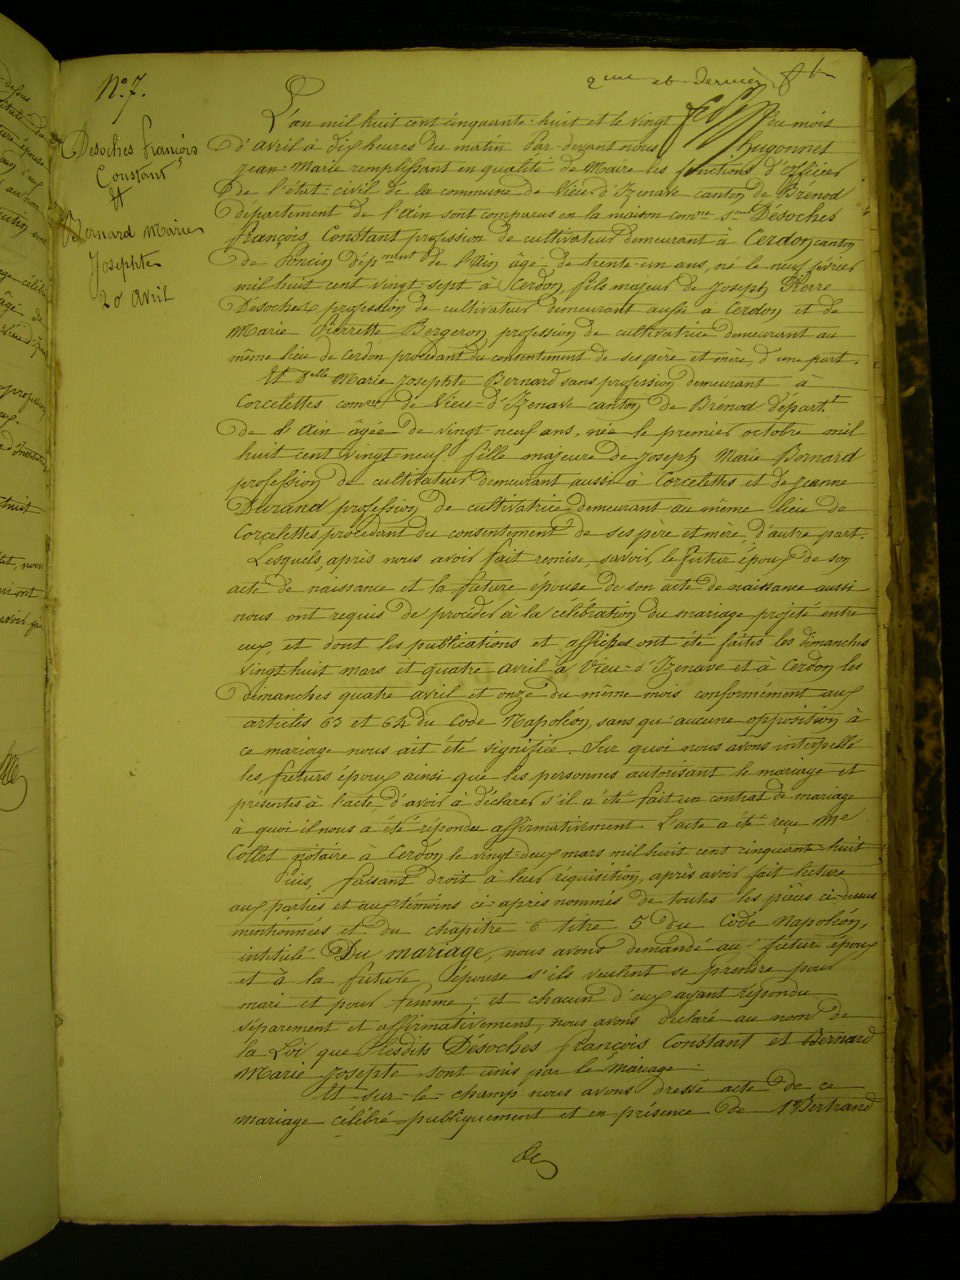 2me et dernier
N° 7.
Desoches François
Constant
et
Bernard Marie
Josephte
20 avril
L'an mil huit cent cinquante-huit et le vingt du mois
d'avril à dix heures du matin Par-devant nous Hugonnet
Jean-Marie remplissant en qualité de Maire les fonctions d'officier
de l'état-civil de la commune de Vieu-d'Izenave canton de Brénod
département de l'Ain sont comparus en la maison comne sr Désoches
François Constant profession de cultivateur demeurant à Cerdon canton
de Poncin dépment de l'Ain âgé de trente-un ans, né le neuf février
mil huit cent vingt-sept à Cerdon, fils majeur de Joseph Pierre
Desoches profession de cultivateur demeurant aussi à Cerdon et de
Marie Pierrette Bergeron profession de cultivatrice demeurant au
même lieu de Cerdon procédant du consentement de ses père et mère, d'une part.
Et Delle Marie Josephte Bernard sans profession demeurant à
Corcelettes comne de Vieu-d'Izenave canton de Brénod départ.t
de l'Ain âgée de vingt-neuf ans, née le premier octobre mil
huit cent vingt-neuf fille majeure de Joseph Marie Bernard
profession de cultivateur demeurant aussi à Corcelettes et de Jeanne
Durand profession de cultivatrice demeurant au même lieu de
Corcelettes procédant du consentement de ses père et mère, d'autre part.
Lesquels, après nous avoir fait remise, savoir, le futur époux de son
acte de naissance et la future épouse de son acte de naissance aussi
nous ont requis de procéder à la célébration du mariage projeté entre
eux et dont les publications et affiches ont été faites les dimanches
vingt-huit mars et quatre avril à Vieu-d'Izenave et à Cerdon les
dimanches quatre avril et onze du même mois conformément aux
articles 63 et 64 du Code Napoléon, sans qu'aucune opposition à
ce mariage nous ait été signifiée. Sur quoi nous avons interpellé
les futurs époux ainsi que les personnes autorisant le mariage et
présentes à l'acte, d'avoir à déclarer s'il a été fait un contrat de mariage
à quoi il nous a été répondu affirmativement. L'acte a été reçu Me
Collet notaire à Cerdon le vingt-deux mars mil huit cent cinquante-huit
Puis, faisant droit à leur réquisition, après avoir fait lecture
aux parties et aux témoins ci-après nommés de toutes les pièces ci-dessus
mentionnées et du chapitre 6 titre 5 du Code Napoléon,
intitulé Du mariage, nous avons demandé au futur époux
et à la future épouse s'ils veulent se prendre pour
mari et pour femme; et chacun d'eux ayant répondu
séparement et affirmativement, nous avons déclaré au nom de
la Loi que lesdits Désoches François Constant et Bernard
Marie Josepte sont unis par le mariage.
Et sur-le-champ nous avons dressé acte de ce
mariage célébré publiquement et en présence de 1° Bertrand